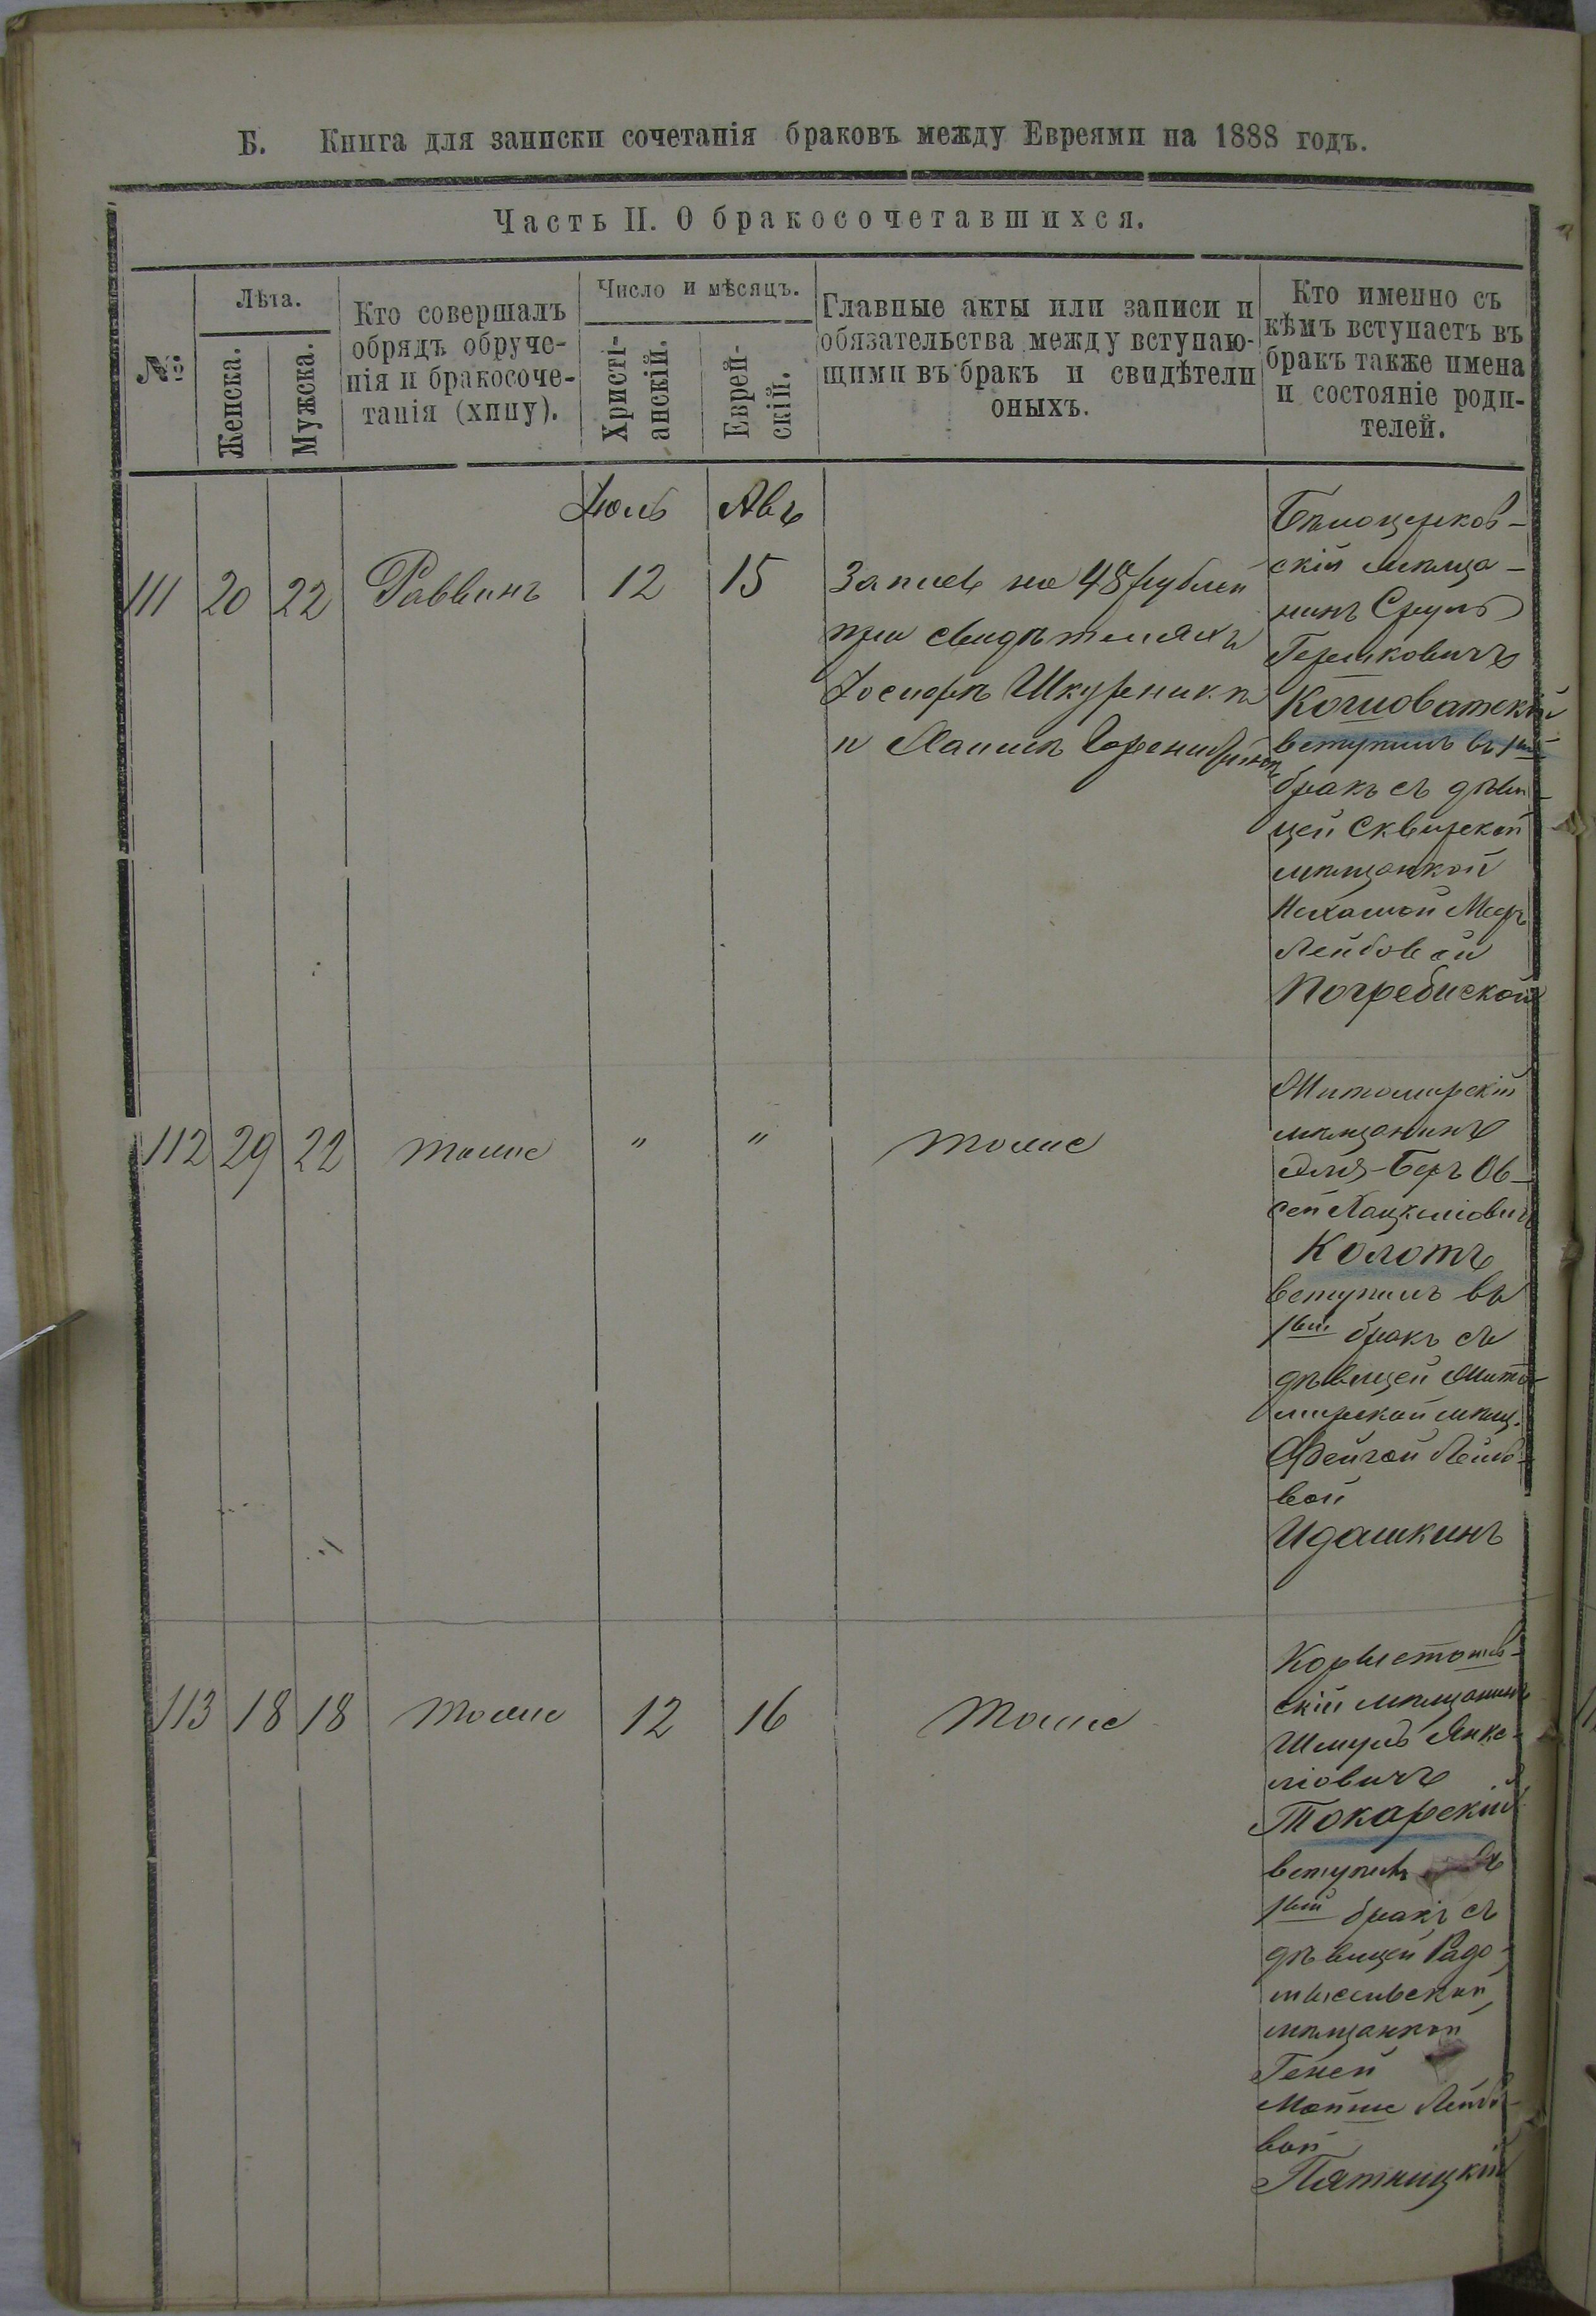 Б. Книга для записки сочетанія браковъ между Евреями на 1888 годъ.
Часть II. О бракосочетавшихся.
№
Лѣта.
Женска.
Мужска.
Кто совершалъ
обрядъ обруче-
нія и бракосоче-
танія (хипу).
Число и мѣсяцъ.
Христі-
анскій.
Еврей-
скій.
Главные акты или записи и
обязательства между вступаю-
щими въ бракъ и свидѣтели
оныхъ.
Кто именно съ
кѣмъ вступаетъ въ
бракъ также имена
и состояніе роди-
телей.
Іюль Авъ
111 20 22 Раввинъ 12 15
Запись на 48 рублей
при свидѣтеляхъ
Іосифѣ Шкурникѣ
и
Бѣлоцерков-
скій мѣща-
нинъ Сруль
Гершковичъ
Когловатскій
вступилъ въ 1вый
бракъ съ дѣви-
цей Сквирской
мѣщанкой
Нехамой Меер
Лейбовой
Погребиской
112 29 22 тоже " " тоже
Житомирскій
мѣщанинъ
Эля-Беръ Ов-
сей Хацкелiовичъ
Колотъ
вступилъ въ
1вый бракъ съ
дѣвицей Жито-
мирской мѣщ.
Фейгой Лейбо-
вой
Идашкинъ
113 18 18 тоже 12 16 тоже
Коростышев-
скій мѣщанинъ
Шмуль Янке-
ліовичъ
Токарскій
вступилъ въ
1вый бракъ съ
дѣвицей Радо-
мысльской
мѣщанкой
Геней
Мойше Лейбо-
вой
Пятницкій